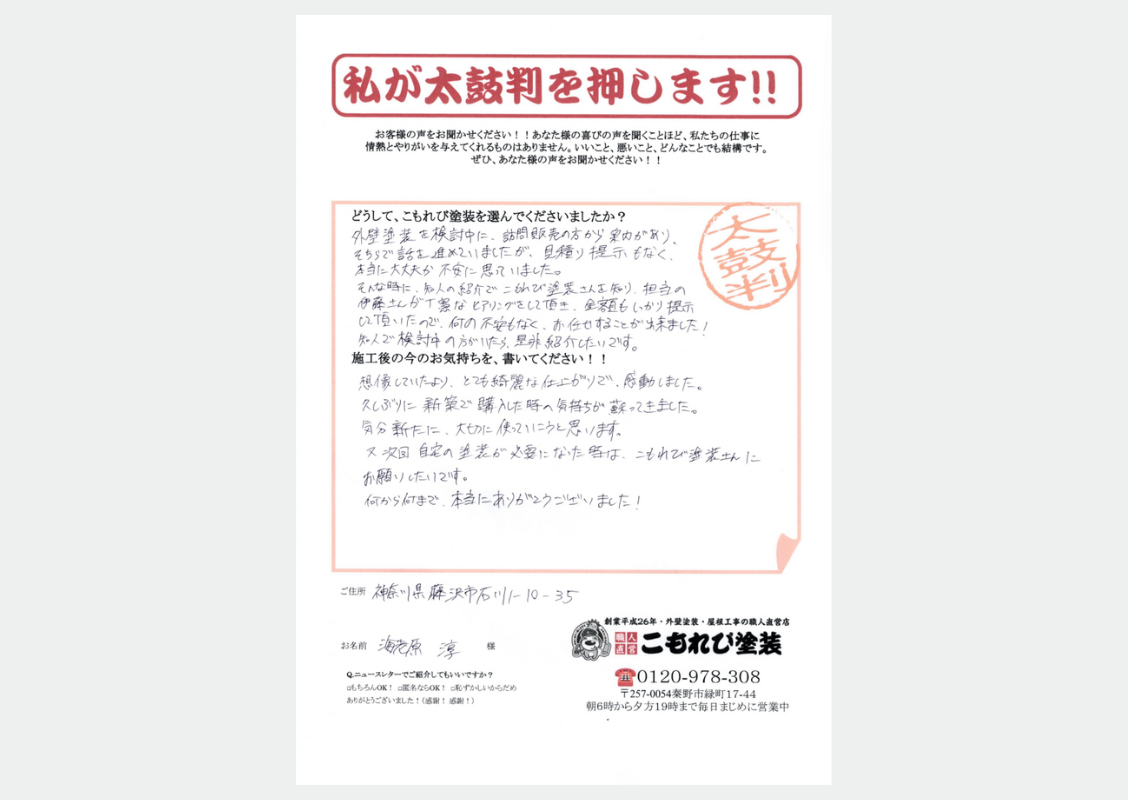 私が太鼓判を押します!!
お客様の声をお聞かせください！！あなた様の喜びの声を聞くことほど、私たちの仕事に
情熱とやりがいを与えてくれるものはありません。いいこと、悪いこと、どんなことでも結構です。
ぜひ、あなた様の声をお聞かせください！！
どうして、こもれび塗装を選んでくださいましたか？
太鼓判
外壁塗装を検討中に、訪問販売の方から案内があり、
そちらで話を進めていましたが、見積り提示もなく、
本当に大丈夫か不安に思っていました。
そんな時に、知人の紹介でこもれび塗装さんを知り、担当の
伊藤さんが丁寧なヒアリングをして頂き、金額もしっかり提示
して頂いたので、何の不安もなく、お任せすることが出来ました！
知人で検討中の方がいたら、是非紹介したいです。
施工後の今のお気持ちを、書いてください！！
想像していたより、とても綺麗な仕上がりで、感動しました。
久しぶりに新築で購入した時の気持ちが蘇ってきました。
気分新たに、大切に使っていこうと思います。
又次回自宅の塗装が必要になった時は、こもれび塗装さんに
お願いしたいです。
何から何まで、本当にありがとうございました！
ご住所 神奈川県藤沢市石川1-10-35
お名前 海老原 淳 様
Q.ニュースレターでご紹介してもいいですか？
□もちろんOK！ □匿名ならOK！ □恥ずかしいからだめ
ありがとうございました！（感謝！感謝！）
創業平成26年・外壁塗装・屋根工事の職人直営店
職人直営 こもれび塗装
0120-978-308
〒257-0054秦野市緑町17-44
朝6時から夕方19時まで毎日まじめに営業中